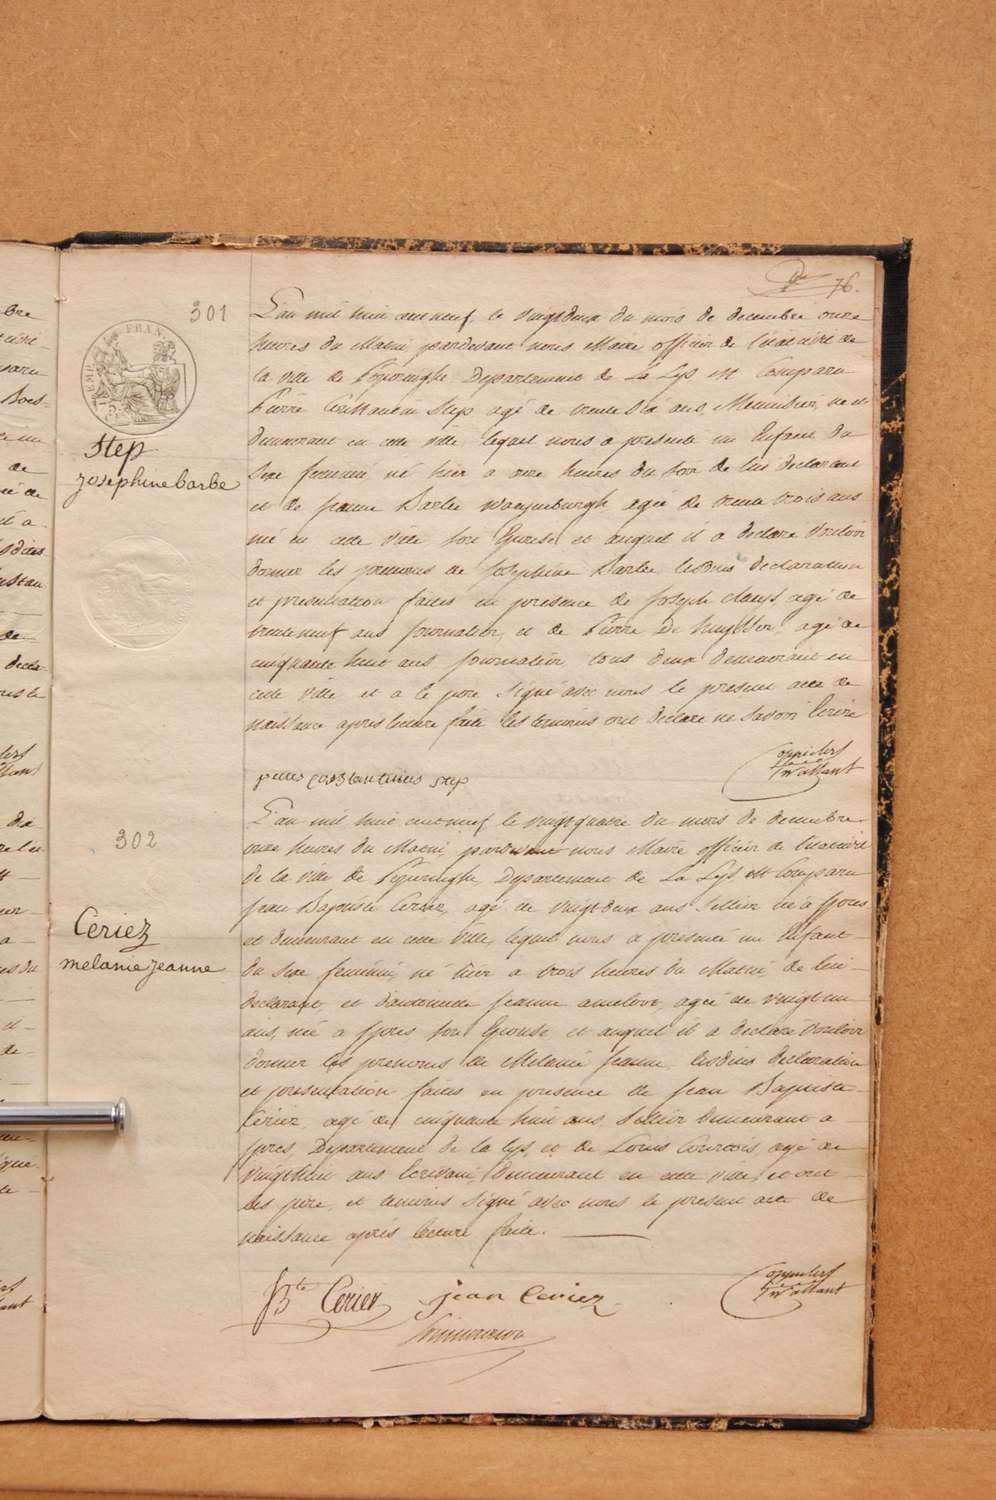 76.
301
L'an mil huit cent neuf, le vingtdeux du mois de decembre onze
heures du Matin pardevant nous Maire officier de l'etat civil de
la ville de Poperinghe, Departement de La Lys est Comparu
Pierre Constantin Step, agé de trente six ans, Menuisier, né et
demeurant en cette ville, lequel nous a presenté un Enfant du
Sexe feminin né hier a onze heures du soir de lui declarant
et de Jeanne Barbe agée de trente trois ans
né en cette ville son Epouse, et auquel il a declaré vouloir
donner les prenoms de Josephine Barbe lesdites declaration
et presentation faites en presence de Joseph Claeys agé de
trente neuf ans Journalier, et de Pierre De agé de
cinquante huit ans Journalier, tous deux demeurant en
cette ville et a le pere Signé avec nous le present acte de
naissance apres lecture faite les temoins ont declaré ne savoir Ecrire
Step
Josephine barbe
petrus constantinus step
302
L'an mil huit cent neuf, le vingt quatre du mois de decembre
onze heures du Matin, pardevant nous Maire officier de l'etat civil
de la ville de Poperinghe, Departement de La Lys est Comparu
Jean Baptiste Ceriez, agé de vingtdeux ans Sellier né a Ypres
et demeurant en cette Ville, lequel nous a presenté un Enfant
du Sexe feminin, né hier a trois heures du Matin, de lui
declarant, et Jeanne agée de vingt un
ans, née a Ypres son Epouse, et auquel il a declaré vouloir
donner les prenoms de Melanie Jeanne, lesdites declaration
et presentation faites en presence de Jean Baptiste
Ceriez agé de cinquante huit ans Sellier demeurant a
Ypres, Departement de la Lys, et de Louis Courtois, agé de
ans Ecrivain, Demeurant en cette ville, et ont
les pere, et temoins Signé avec nous le present acte de
naissance après lecture faite.
Ceriez
melanie jeanne
JBte Ceriez
jean Ceriez